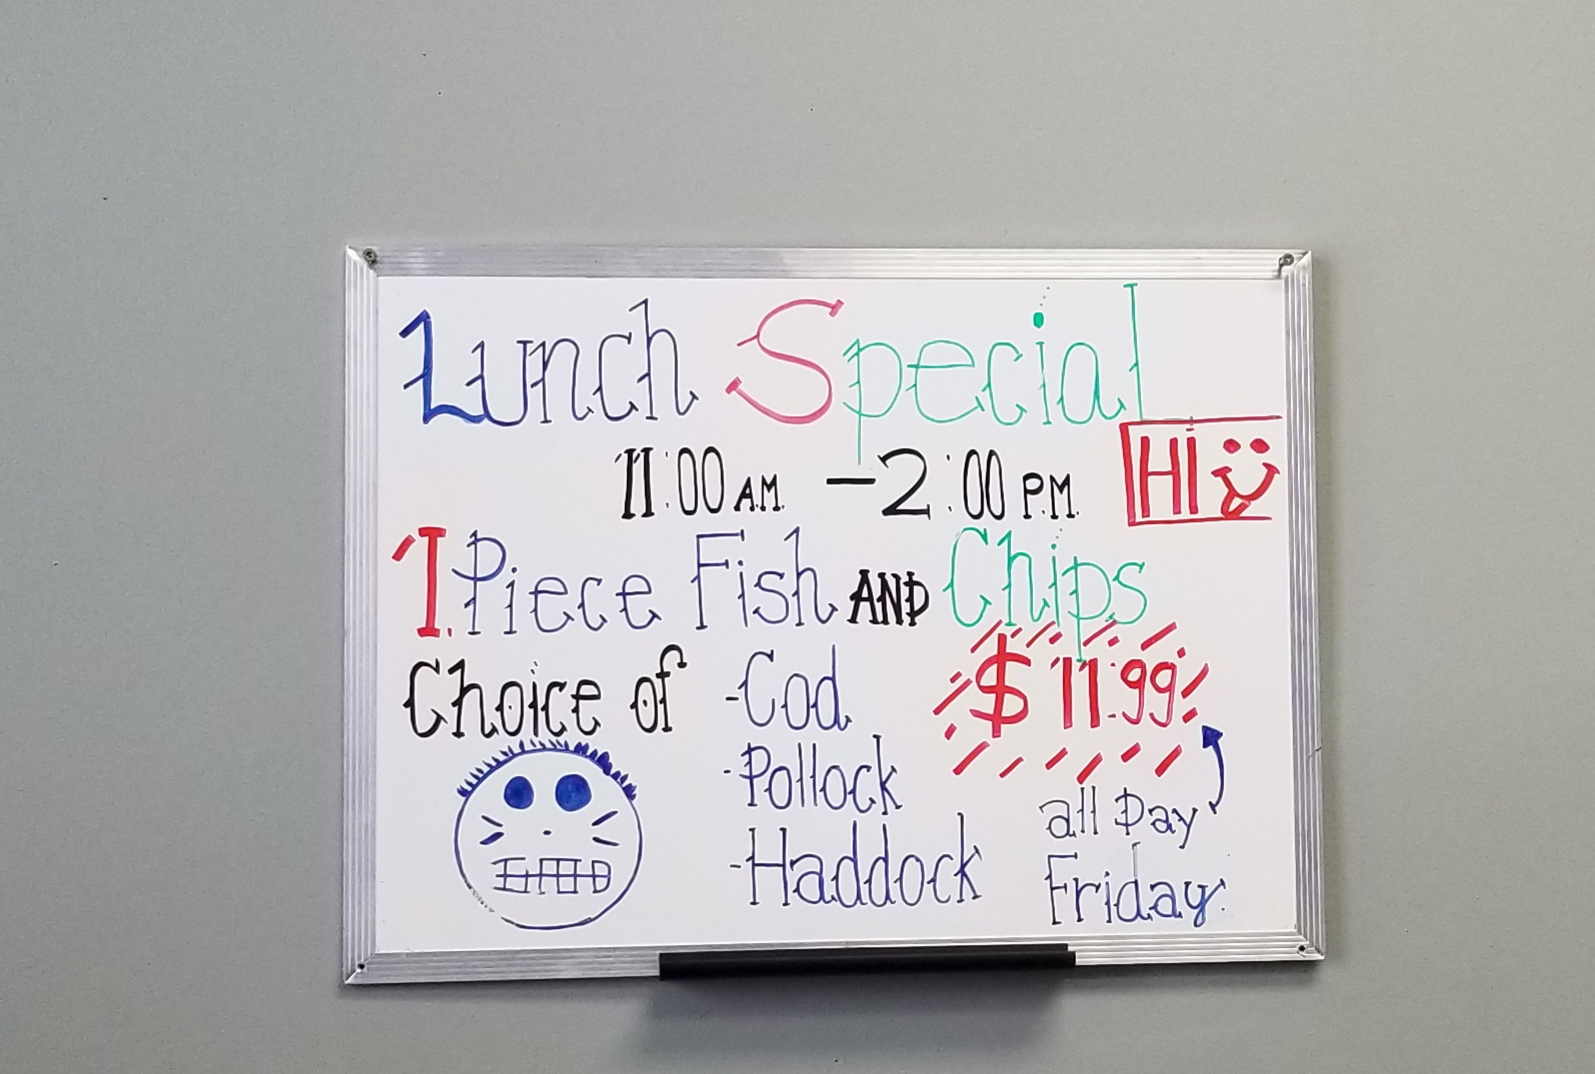 Lunch Special
11:00 A.M. - 2:00 P.M.
Hi
1 Piece Fish AND Chips
Choice of
- Cod
- Pollock
- Haddock
$11.99
all Day
Friday